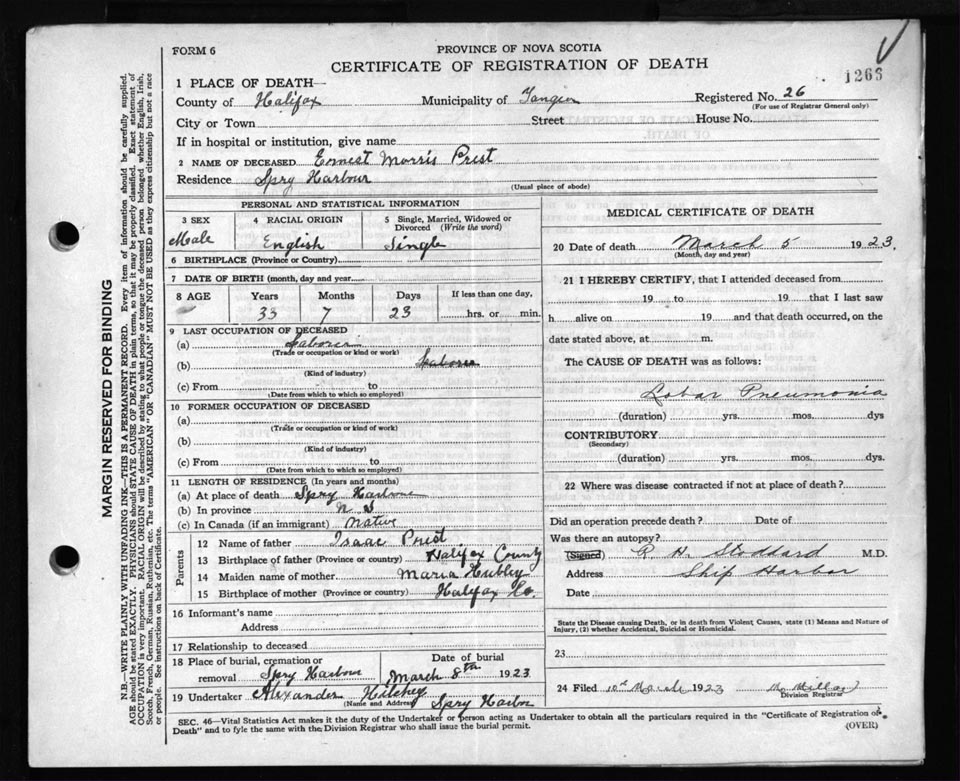 FORM 6
PROVINCE OF NOVA SCOTIA
CERTIFICATE OF REGISTRATION OF DEATH
1266
1 PLACE OF DEATH—
County of Halifax Municipality of Tangier Registered No. 26
(For use of Registrar General only)
City or Town Street House No.
If in hospital or institution, give name
2 NAME OF DECEASED Ernest Morris Prest
Residence Spry Harbour
(Usual place of abode)
PERSONAL AND STATISTICAL INFORMATION
3 SEX
Male
4 RACIAL ORIGIN
English
5 Single, Married, Widowed or
Divorced (Write the word)
Single
6 BIRTHPLACE (Province or Country)
7 DATE OF BIRTH (month, day and year
8 AGE Years Months Days If less than one day,
33 7 23 hrs. or min.
9 LAST OCCUPATION OF DECEASED
(a) Laborer
(Trade or occupation or kind or work)
(b) Laborer
(Kind of industry)
(c) From to
(Date from which to which so employed)
10 FORMER OCCUPATION OF DECEASED
(a)
(Trade or occupation or kind of work)
(b)
(Kind of industry)
(c) From to
(Date from which to which so employed)
11 LENGTH OF RESIDENCE (In years and months)
(a) At place of death Spry Harbour
(b) In province N S
(c) In Canada (if an immigrant) Native
Parents
12 Name of father Isaac Prest
13 Birthplace of father (Province or country) Halifax County
14 Maiden name of mother Maria Hubley
15 Birthplace of mother (Province or country) Halifax Co.
16 Informant's name
Address
17 Relationship to deceased
18 Place of burial, cremation or
removal Spry Harbour
Date of burial
March 8th 1923
19 Undertaker Alexander Hilchey
(Name and Address) Spry Harbor
MEDICAL CERTIFICATE OF DEATH
20 Date of death March 5 1923.
(Month, day and year)
21 I HEREBY CERTIFY, that I attended deceased from
19 to 19 that I last saw
h alive on 19 and that death occurred, on the
date stated above, at m.
The CAUSE OF DEATH was as follows:
Lobar Pneumonia
(duration) yrs. mos. dys
CONTRIBUTORY
(Secondary)
(duration) yrs. mos. dys.
22 Where was disease contracted if not at place of death?
Did an operation precede death? Date of
Was there an autopsy?
(Signed) R H Stoddard M.D.
Address Ship Harbor
Date
State the Disease causing Death, or in death from Violent Causes, state (1) Means and Nature of
Injury, (2) whether Accidental, Suicidal or Homicidal.
23
24 Filed 10th March 1923
Division Registrar
SEC. 46—Vital Statistics Act makes it the duty of the Undertaker or person acting as Undertaker to obtain all the particulars required in the "Certificate of Registration of
Death" and to fyle the same with the Division Registrar who shall issue the burial permit.
(OVER)
MARGIN RESERVED FOR BINDING
N.B.—WRITE PLAINLY WITH UNFADING INK—THIS IS A PERMANENT RECORD. Every item of information should be carefully supplied.
AGE should be stated EXACTLY. PHYSICIANS should STATE CAUSE OF DEATH in plain terms, so that it may be properly classified. Exact statement of
OCCUPATION is very important. RACIAL ORIGIN will be described by stating to what people or tongue the deceased person belonged whether English, Irish,
Scotch, French, German, Russian, Ruthenian, etc. The terms "AMERICAN" OR "CANADIAN" MUST NOT BE USED as they express citizenship but not a race
or people. See instructions on back of Certificate.